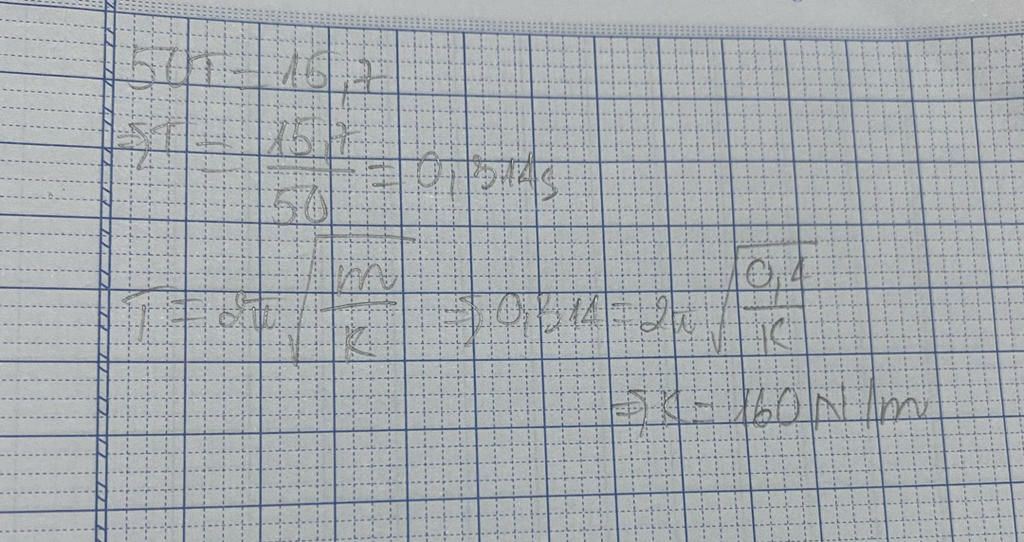 50T = 15,7
⇒ T = 15,7/50 = 0,314s
T = 2π√(m/k) ⇒ 0,314 = 2π√(0,4/k)
⇒ K = 160 N/m